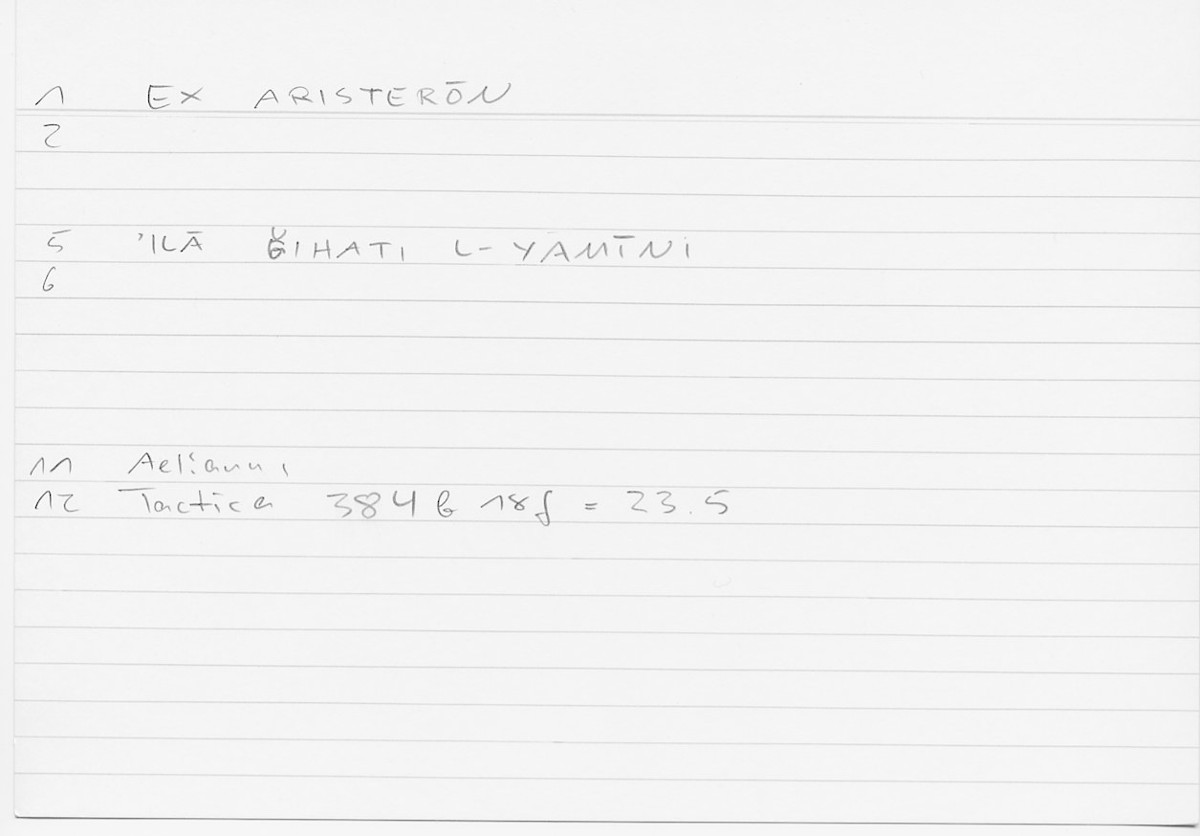 1 EX ARISTERŌN
2
5 'ILĀ ǦIHATI L-YAMĪNI
6
11 Aelianus,
12 Tactica 384 b 18f = 23.5